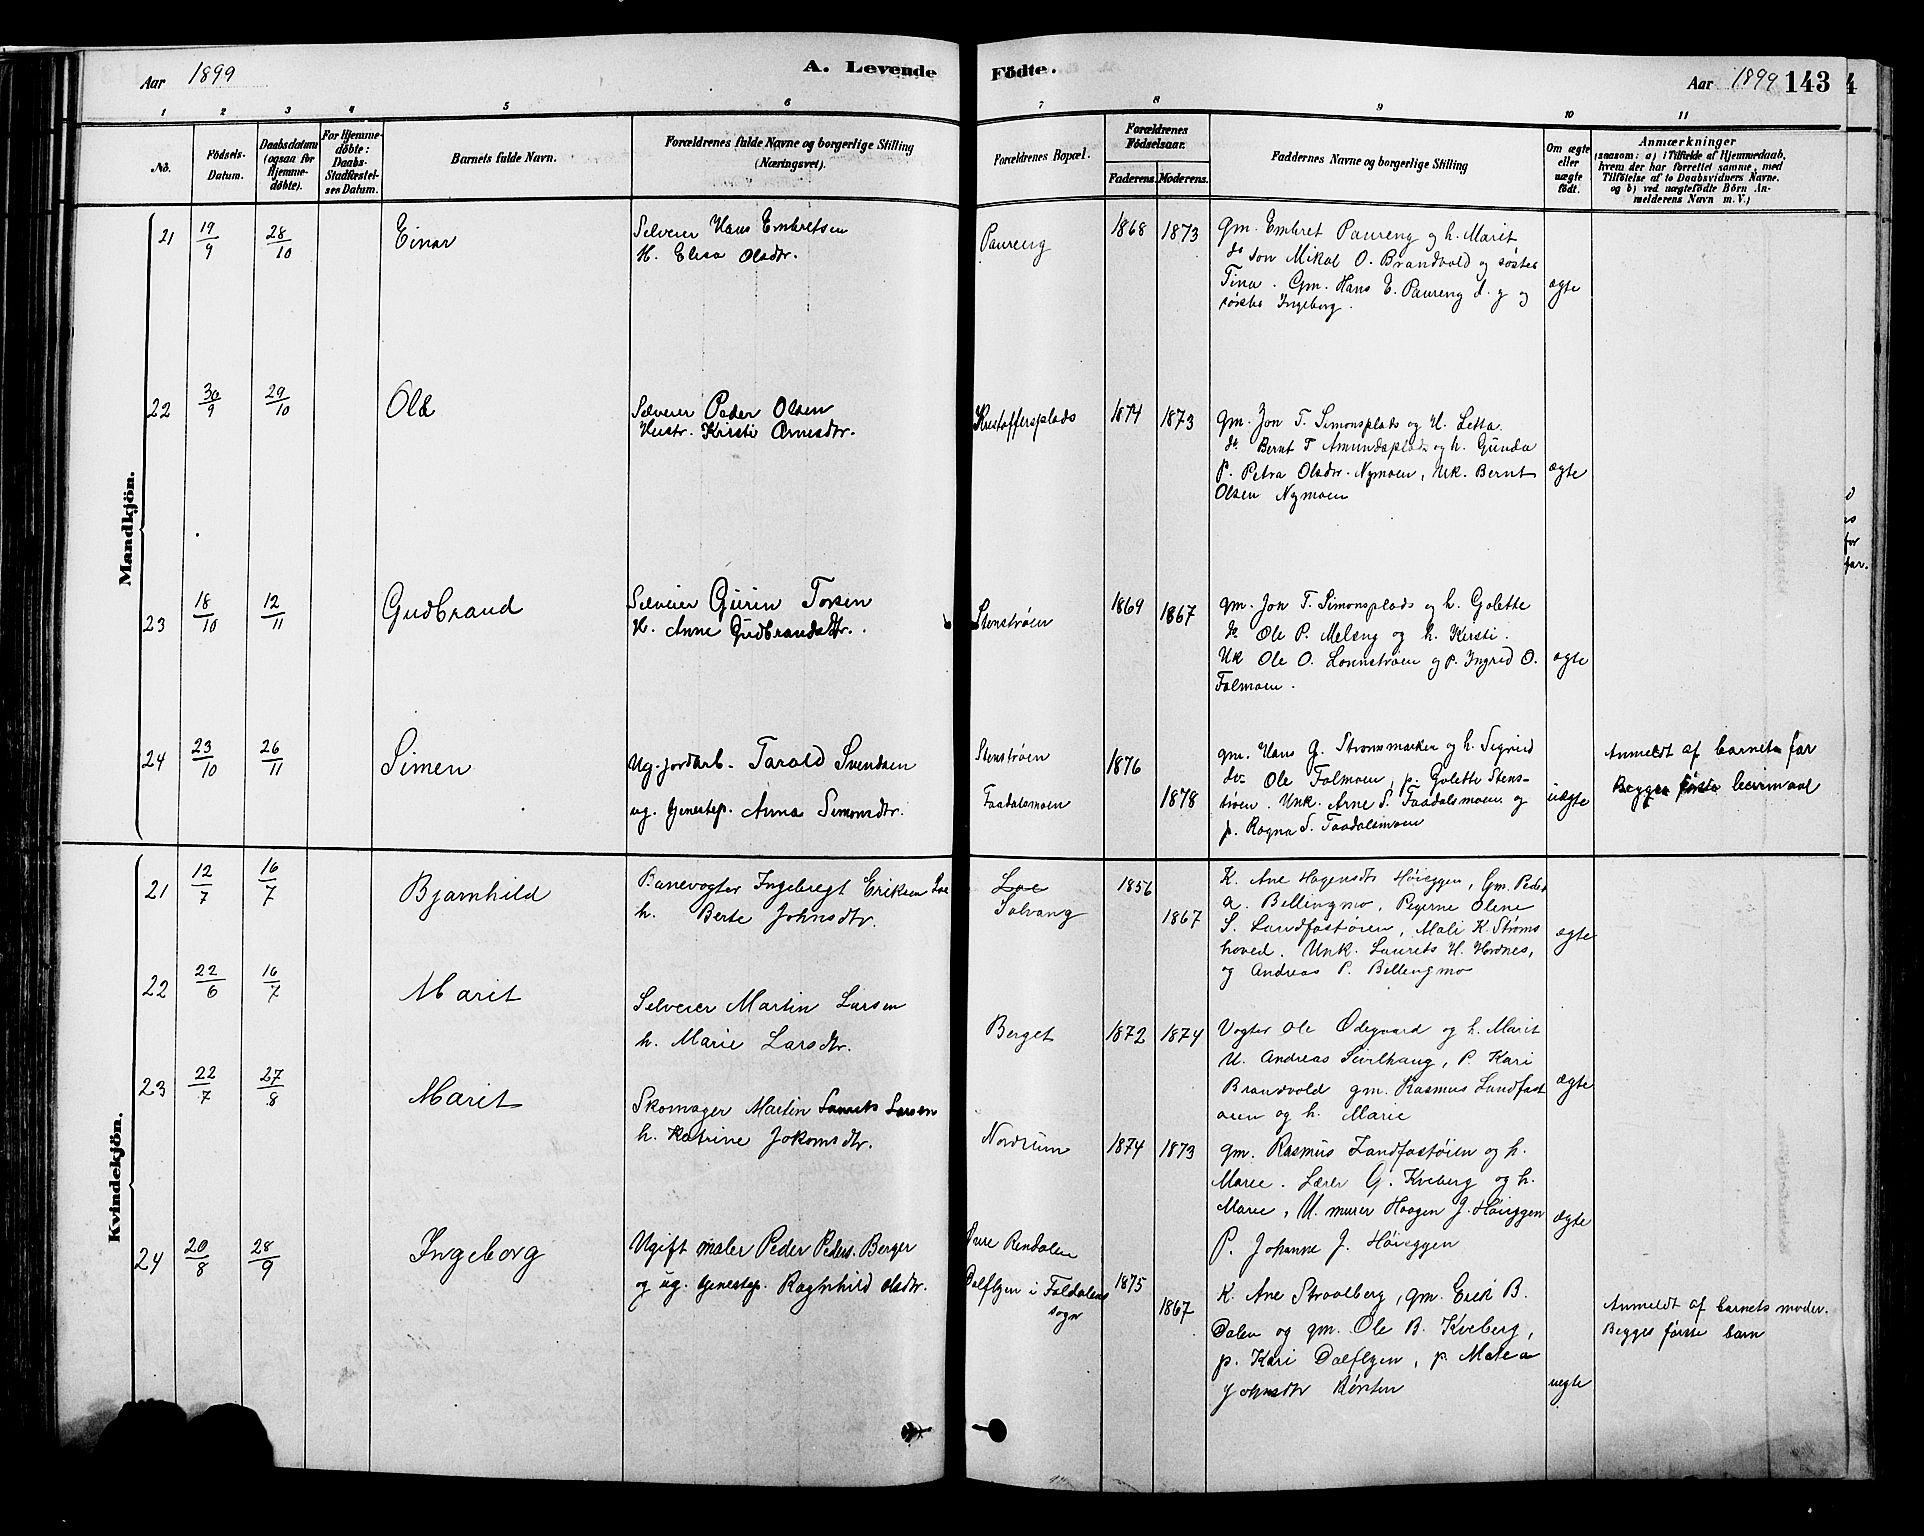 Aar 1899
A. Levende
Födte.
Aar 1899
143
1 2 3 4 5 6 7 8 9 10 11
No.
Födsels-
Datum.
Daabsdatum
(ogsaa for
Hjemme-
döbte).
For Hjemme-
döbte:
Daabs-
Stadfæstel-
ses Datum.
Barnets fulde Navn.
Forældrenes fulde Navne og borgerlige Stilling
(Næringsvei).
Forældrenes Bopæl.
Forældrenes
Födselsaar.
Faderens. Moderens.
Faddernes Navne og borgerlige Stilling
Om ægte
eller
uægte
födt.
Anmærkninger
(saasom: a) i Tilfælde af Hjemmedaab,
hvem der har forrettet samme, med
Tilföielse af to Daabsvidners Navne,
og b) ved uægtefödte Börn An-
melderens Navn m. V.)
Mandkjön.
21 19/9 28/10 Einar
Selveier Hans Embretsen
H. Elisa Olsdtr.
Paureng
1868 1873
gm. Embret Paureng og h. Marit
do son Mikal O. Brandvold og søster
Tina. Gm. Hans E. Paureng d. y og
søster Ingeborg.
ægte
22 30/9 29/10 Ole
Selveier Peder Olsen
Hustr. Kirsti Arnesdtr.
Kristoffersplads
1874 1873
gm. Jon T. Simonsplads og H. Letta
do Bernt T Amundsplads og h. Gunda
P. Petra Olsdtr. Nymoen, Uk. Bernt
Olsen Nymoen
ægte
23 18/10 12/11 Gudbrand
Selveier Gurin Torsen
H. Anne Gudbrandsdtr.
Stenstrøen
1869 1867
gm. Jon T. Simonsplads og h. Golette
do Ole P. Meleng og h. Kirsti.
Uk Ole O. Lonnstrøen og P. Ingrid O.
Folmoen.
ægte
24 23/10 26/11 Simen
Ug. jordarb. Tarald Svendsen
ug. tjenestep. Anna Simonsdtr.
Stenstrøen
Faadalsmoen
1876
1878
gm. Hans G. Strømsmarken og h. Sigrid
do Ole Folmoen, p. Golette Stens-
trøen. Unk. Arne S. Faadalsmoen og
p. Ragna S. Faadalsmoen
uægte
Anmeldt af barnets far
Begges første leiermaal
Kvindekjön.
21 12/7 16/7 Bjarnhild
Banevogter Ingebregt Eriksen Loe
h. Berte Johnsdtr.
Loe
Solvang
1856
1867
K. Ane Hagensdt Høieggen, Gm. Peder
A. Bellingmo, Pigerne Oline
S. Landfastøien, Mali K. Strøms
hoved. Unk. Laurits H. Hodnes,
og Andreas P. Bellingmo
ægte
22 22/6 16/7 Marit
Selveier Martin Larsen
h. Marie Larsdtr.
Berget
1872 1874
Vogter Ole Ødegaard og h. Marit
U. Andreas Sivilhaug, P. Kari
Brandvold gm. Rasmus Landfast
øien og h. Marie
ægte
23 22/7 27/8 Marit
Skomager Martin Laurits Larsen
h. Katrine Jokomsdtr.
Nordrum
1874 1873
gm. Rasmus Landfastøien og h.
Marie. Lærer G. Kveberg og h.
Marie, U. murer Haagen J. Høieggen
P. Johanne J. Høieggen
ægte
24 20/8 28/9 Ingeborg
Ugift maler Peder Peders. Berger
og ug. tjenestep. Ragnhild Olsdtr.
Øvre Rendalen
Dalflyen i Foldalens
sogn
1875
1867
K. Ane Straalberg, gm. Erik B.
Dalen og gm. Ole B. Kveberg,
p. Kari Dalflyen, p. Matea
Johnsdtr Børsten
uægte
Anmeldt af barnets moder.
Begges første barn